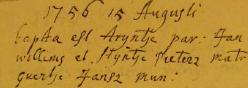 1756 15 Augusti
bapta est Aryntje par: Jan
willems et Styntje Pieterz matr
guertje Jansz mun: